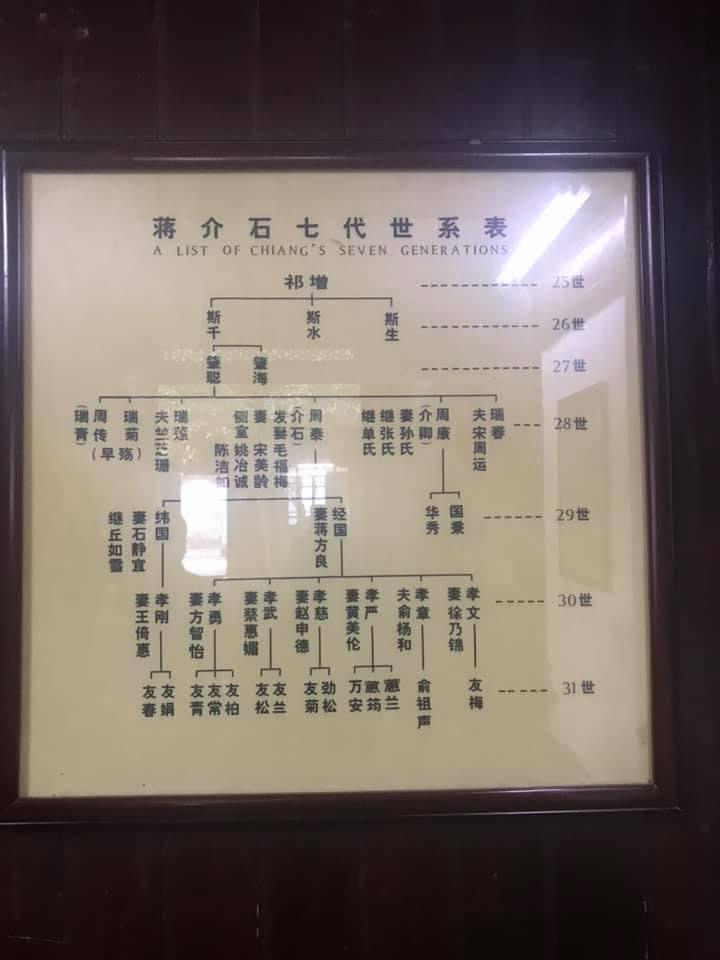 蒋介石七代世系表
A LIST OF CHIANG'S SEVEN GENERATIONS
祁增 25世
斯千 斯水 斯生 26世
肇聪 肇海 27世
(瑞青) 周传 瑞菊 (早殇) 夫竺芝珊 瑞莲 侧室 陈洁如 姚冶诚 妻 宋美龄 发妻毛福梅 (介石) 周泰 继单氏 继张氏 妻孙氏 (介卿) 周康 夫宋周运 瑞春 28世
继丘如雪 妻石静宜 纬国 妻蒋方良 经国 华秀 国秉 29世
妻王倚惠 孝刚 妻方智怡 孝勇 妻蔡惠媚 孝武 妻赵申德 孝慈 妻黄美伦 孝严 夫俞杨和 孝章 妻徐乃锦 孝文 30世
友春 友娟 友青 友常 友柏 友松 友兰 友菊 劲松 万安 蕙筠 蕙兰 俞祖声 友梅 31世